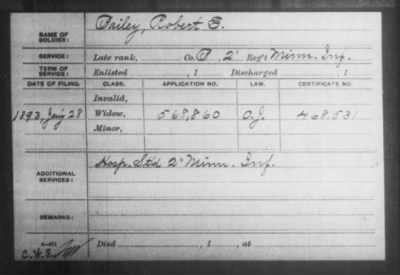 NAME OF SOLDIER: Bailey, Robert E.
SERVICE: Late rank, Co. B, 2" Reg't Minn. Inf.
TERM OF SERVICE: Enlisted , 1 Discharged , 1
DATE OF FILING. CLASS. APPLICATION NO. LAW. CERTIFICATE NO.
Invalid,
1893, 28 Widow, 568,860 O.J. 468,531
Minor,
ADDITIONAL SERVICES: Hosp. Std 2" Minn. Inf.
REMARKS:
Died , 1 , at